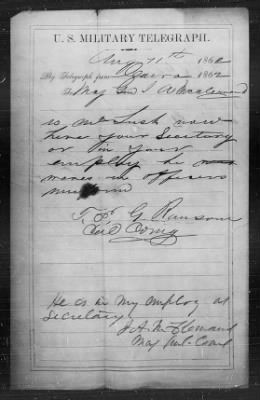 U. S. MILITARY TELEGRAPH.
Aug 11th 1862
By Telegraph from Cairo 1862
To Maj Gen J A McClernand
is Mr Lusk now
here your Secetary
or in your
employ he
wares an officers
uniform
T. E. G. Ransom
Col Comg
He is in my employ as
Secretary
J A McClernand
Maj Genl Comd